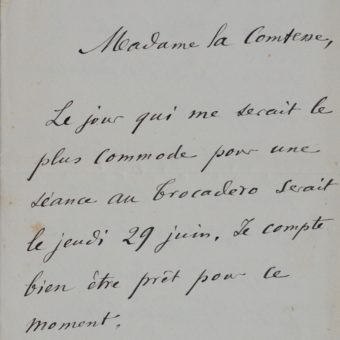 Madame la Comtesse,
Le jour qui me serait le
plus commode pour une
séance au Trocadero serait
le jeudi 29 juin. Je compte
bien être prêt pour ce
moment.